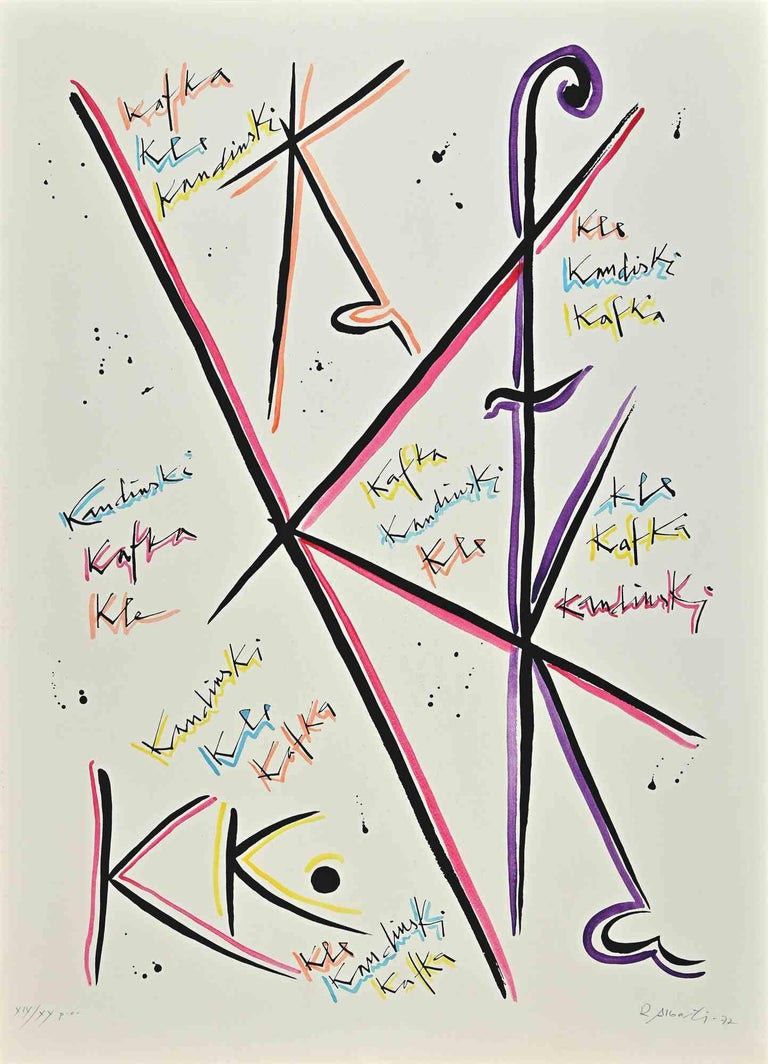 Kafka
Kle
Kandinski
Kle
Kandiski
Kafka
Kandinski
Kafka
Kle
Kafka
Kandinski
Kle
Kle
Kafka
Kandinski
Kandinski
Kle
Kafka
K K
Kle
Kandinski
Kafka
XIX/XX p.a.
R. Alberti-72